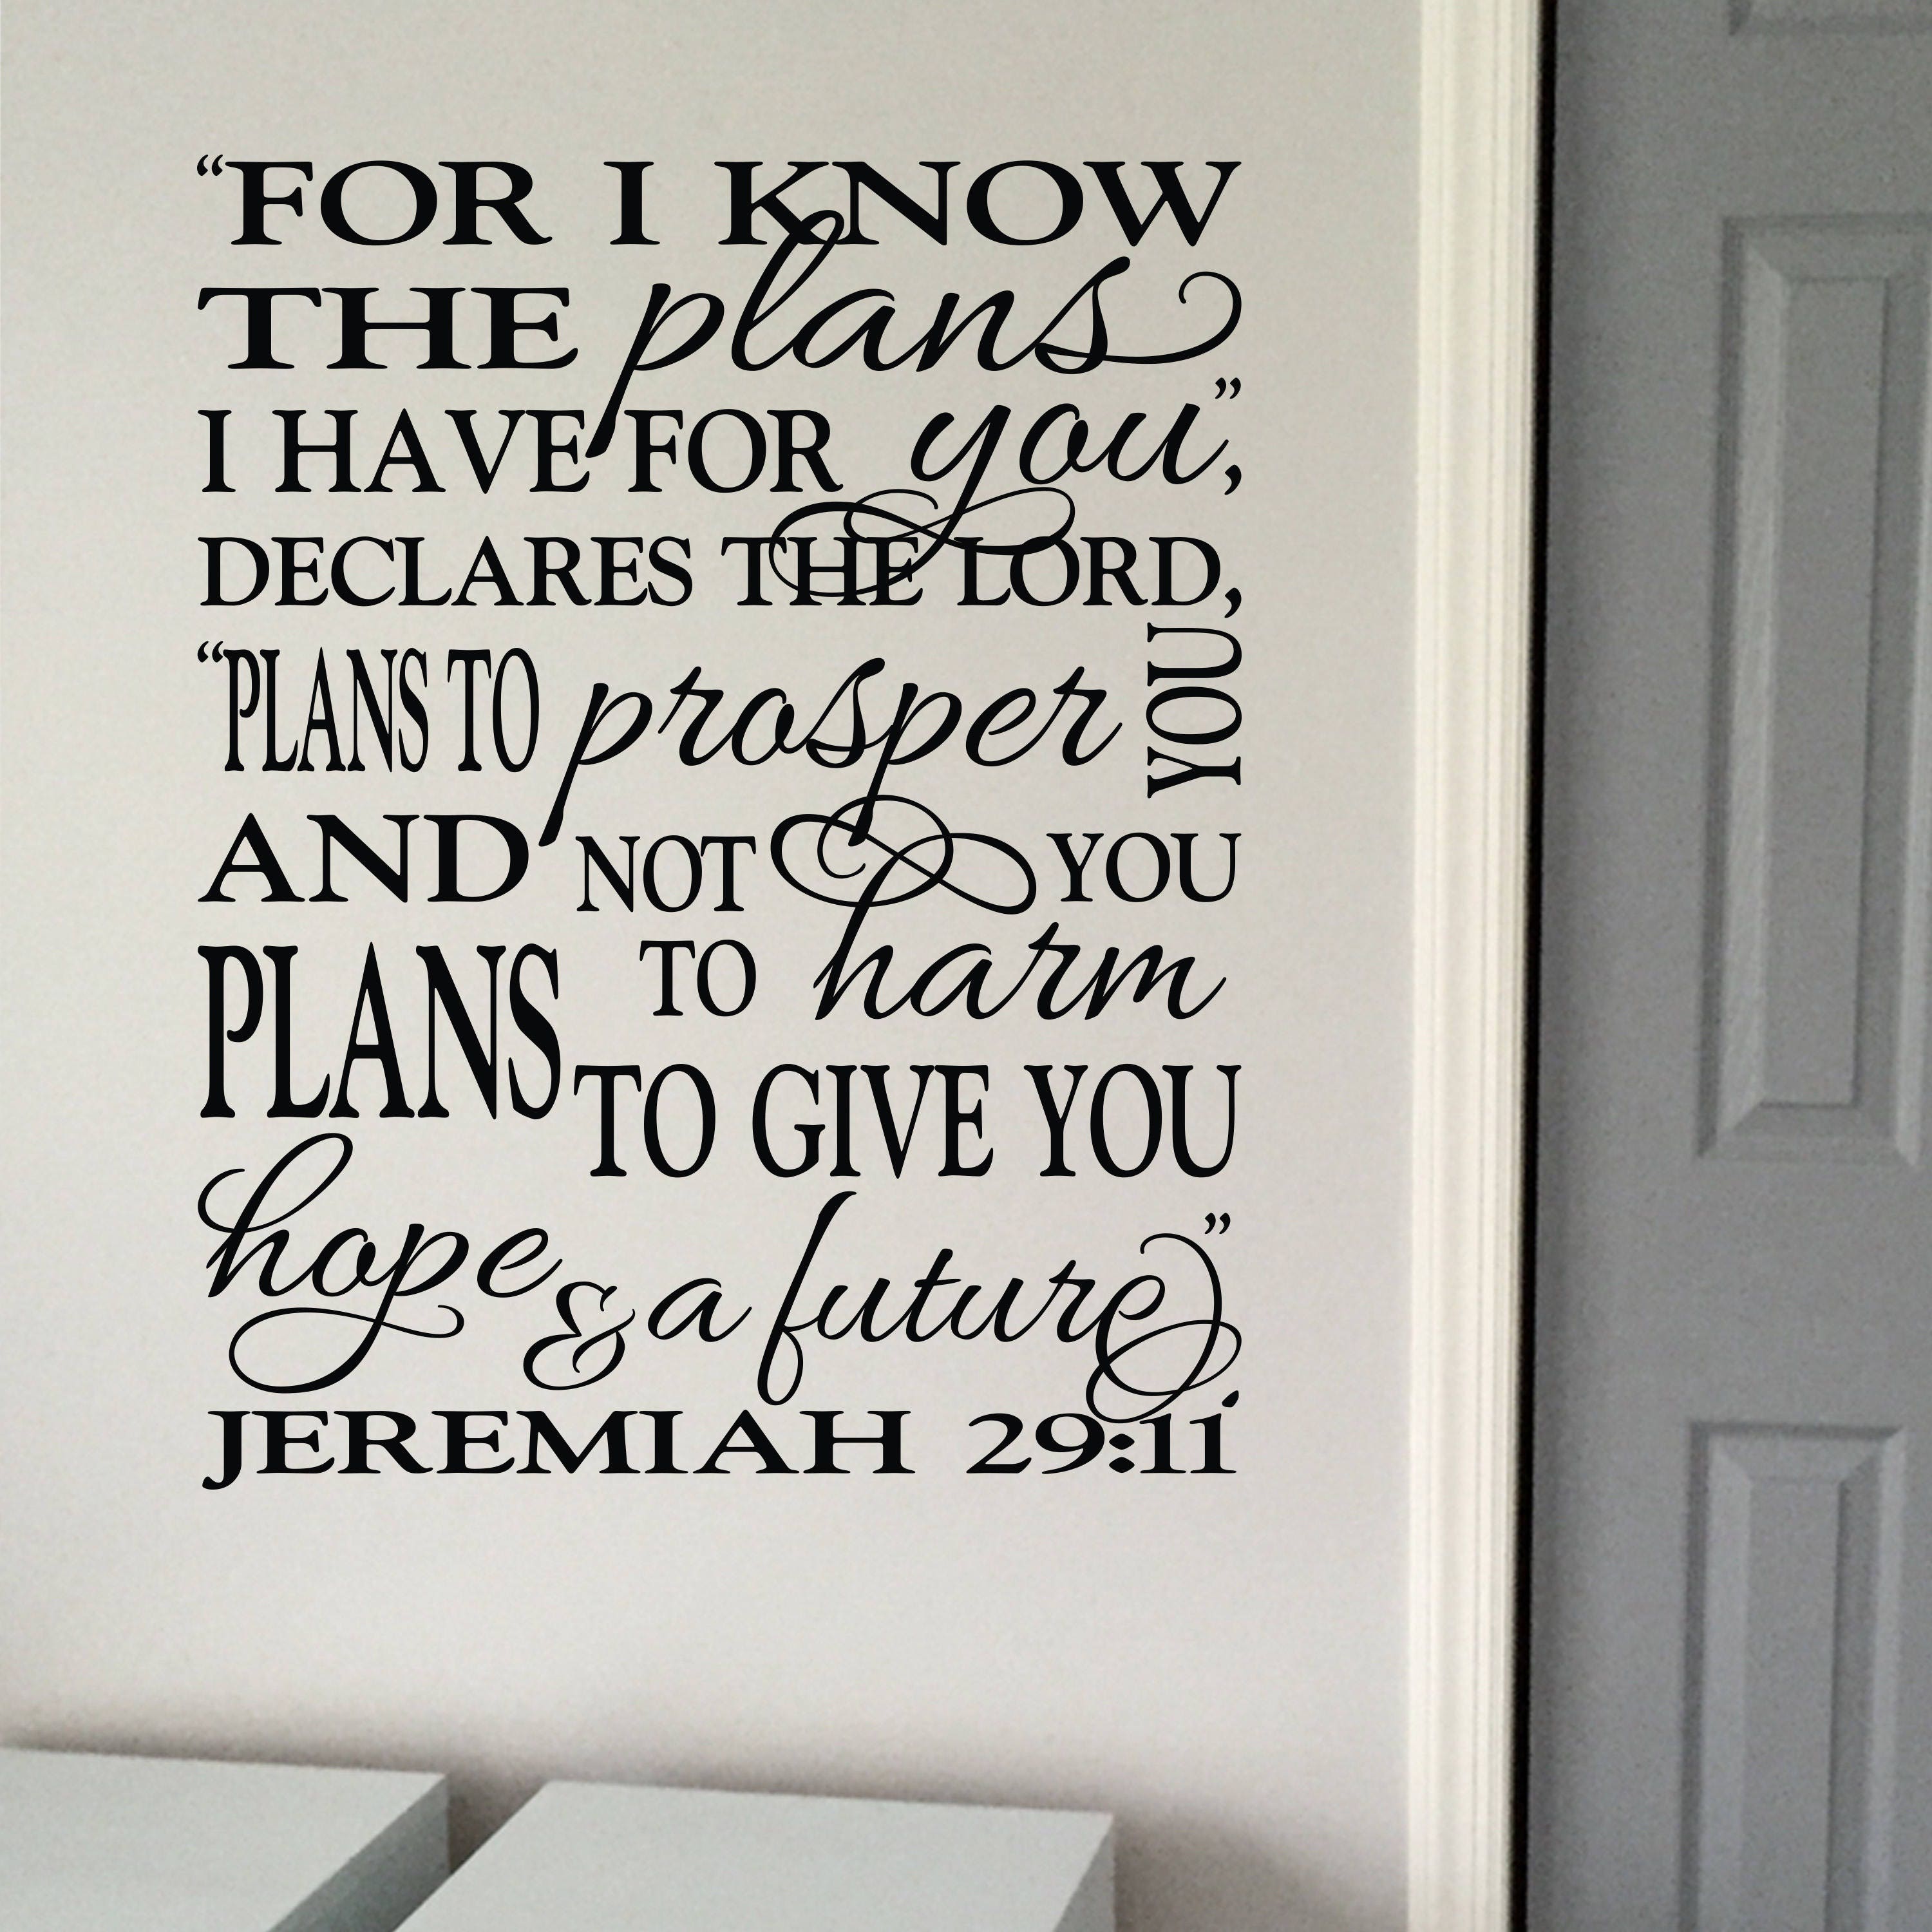 “FOR I KNOW
THE plans
I HAVE FOR you”,
DECLARES THE LORD,
“PLANS TO prosper YOU
AND NOT TO harm YOU
PLANS TO GIVE YOU
hope & a future”
JEREMIAH 29:11